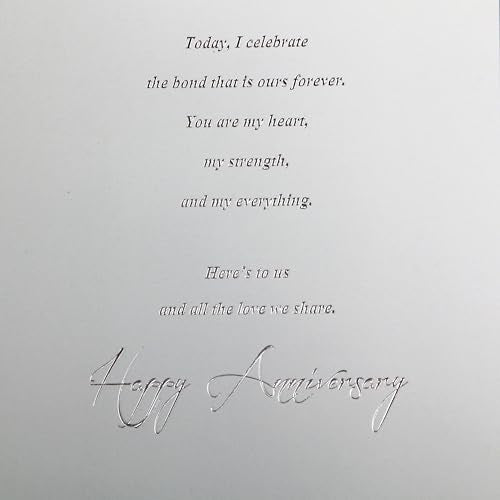 Today, I celebrate
the bond that is ours forever.
You are my heart,
my strength,
and my everything.
Here's to us
and all the love we share.
Happy Anniversary